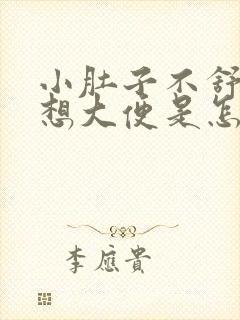 小肚子不舒
想大便是怎
李应贵